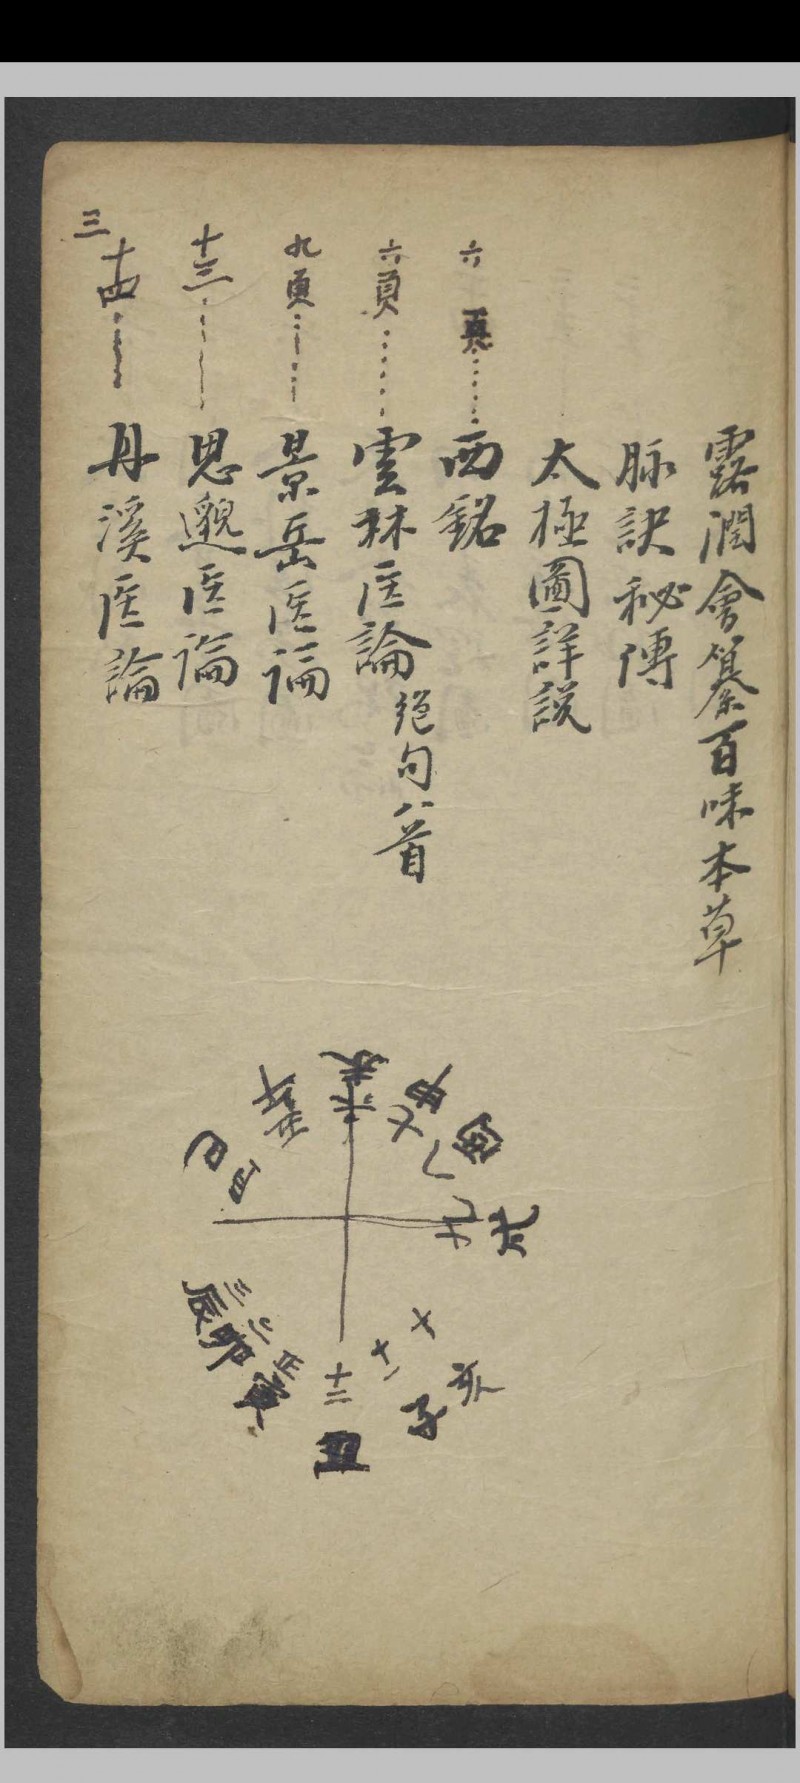 露潤會纂百味本草
脉訣秘傳
太極圖詳説
六頁……西銘
六頁……雲林医論 绝句八首
九頁……景岳医論
十三……思邈医論
十四……丹溪医論
三
未 六
申 七
酉 八
戌 九
亥 十
子 十一
丑 十二
寅 正
卯 二
辰 三
巳 四
午 五